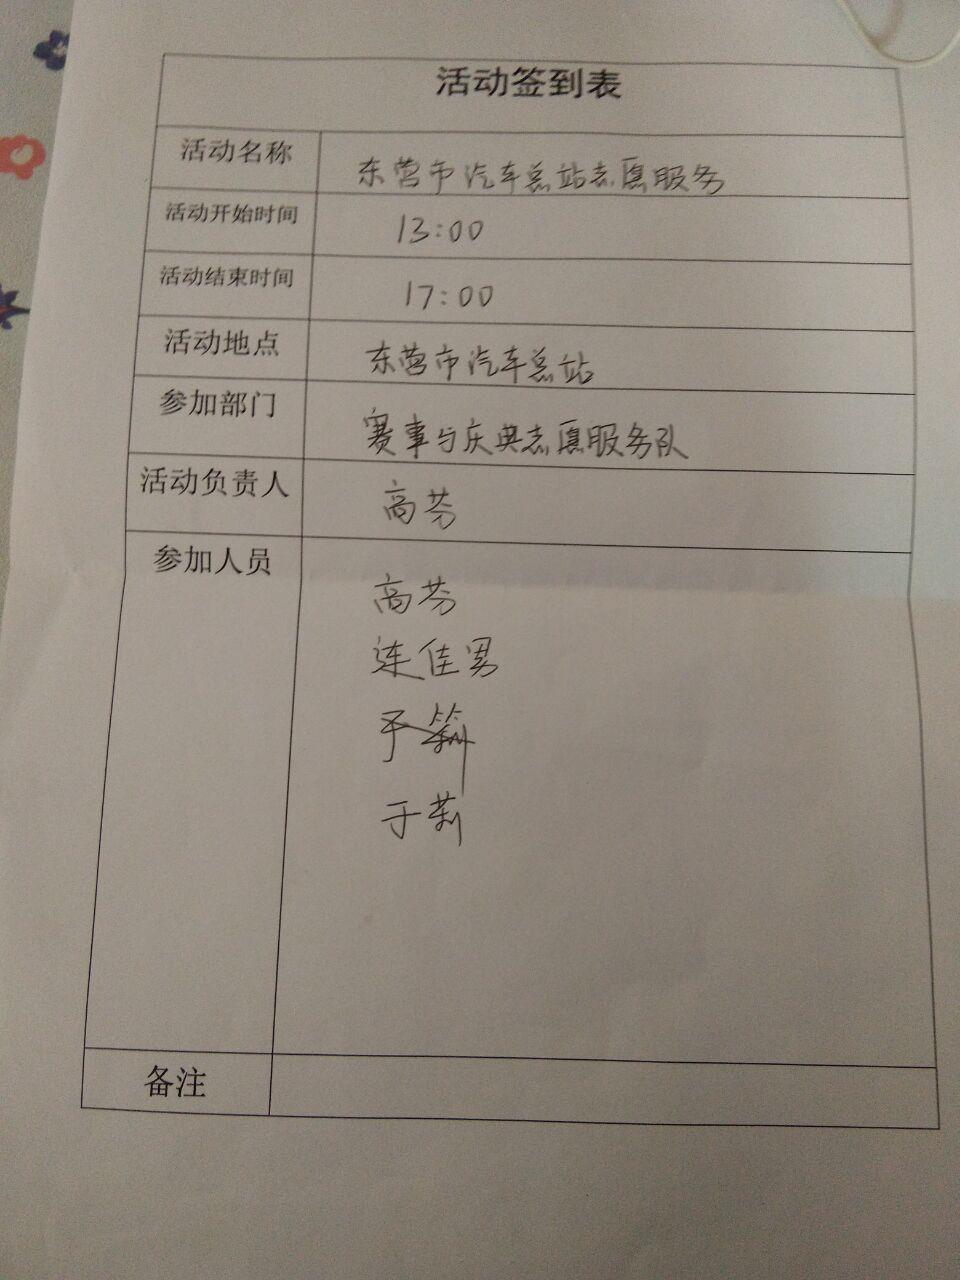 活动签到表
活动名称 东营市汽车总站志愿服务
活动开始时间 13:00
活动结束时间 17:00
活动地点 东营市汽车总站
参加部门 赛事与庆典志愿服务队
活动负责人 高芬
参加人员 高芬
连佳男
于莉
备注